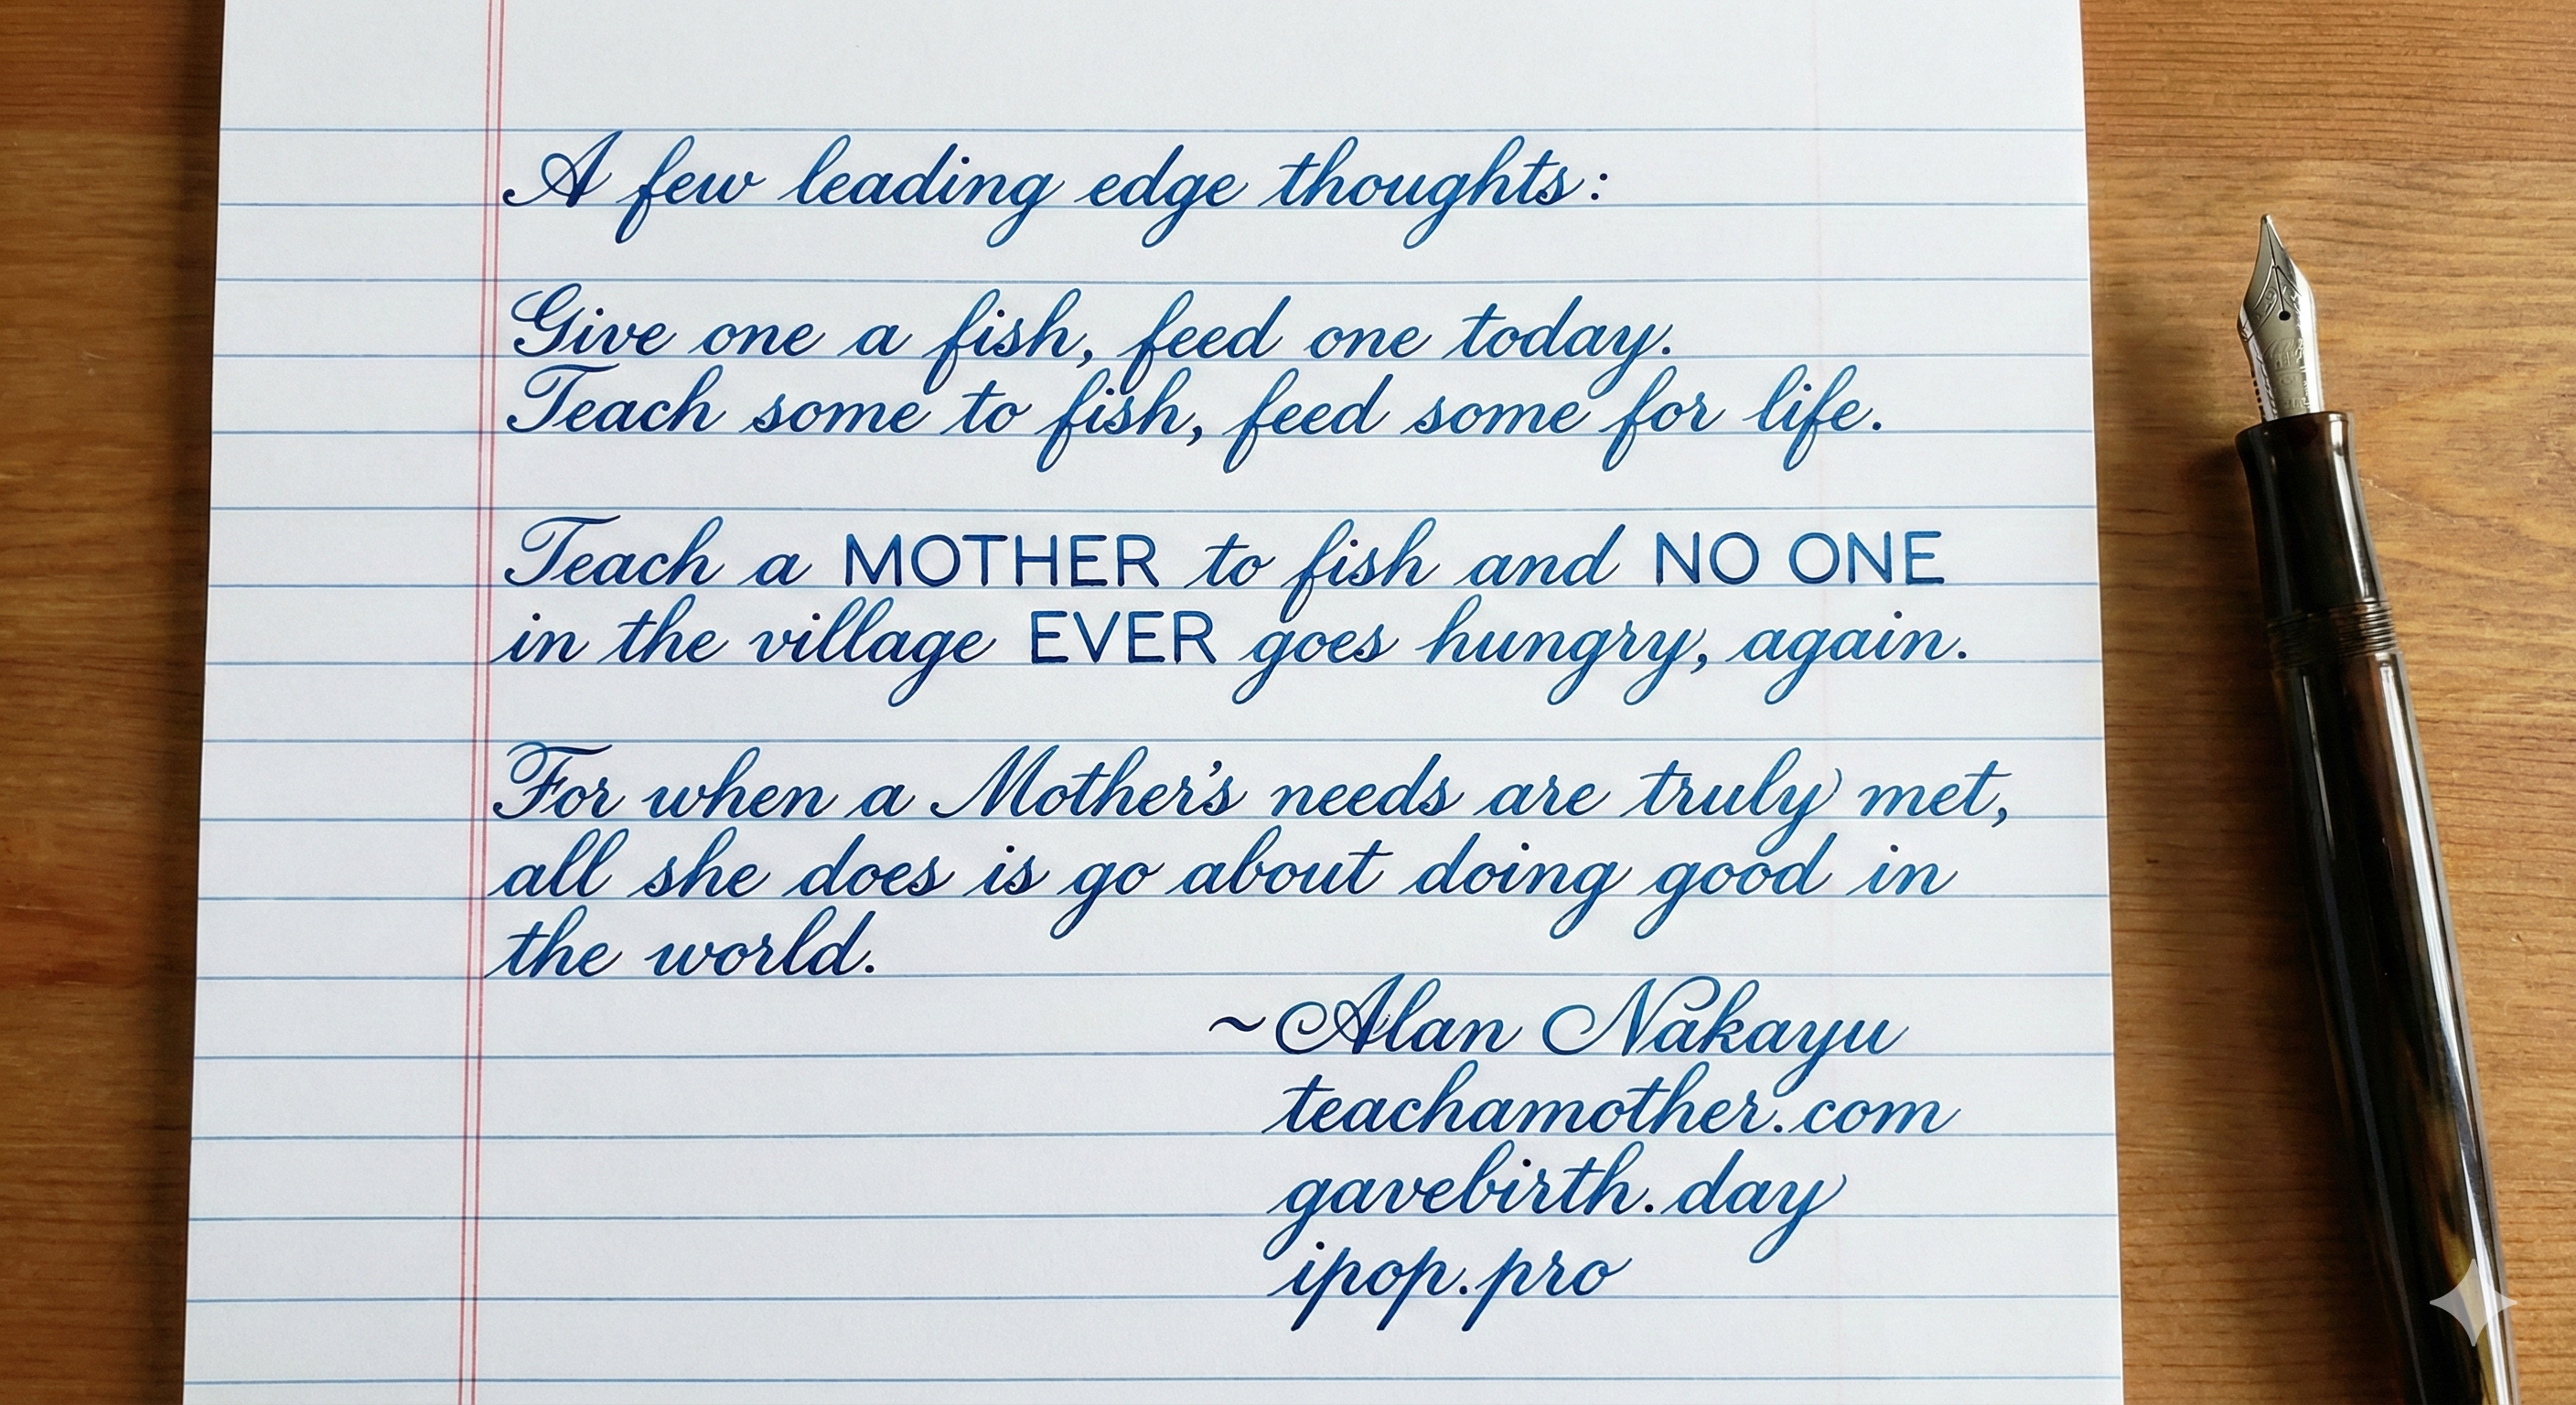 A few leading edge thoughts:
Give one a fish, feed one today.
Teach some to fish, feed some for life.
Teach a MOTHER to fish and NO ONE
in the village EVER goes hungry, again.
For when a Mother's needs are truly met,
all she does is go about doing good in
the world.
~Alan Nakayu
teachamother.com
gavebirth.day
ipop.pro